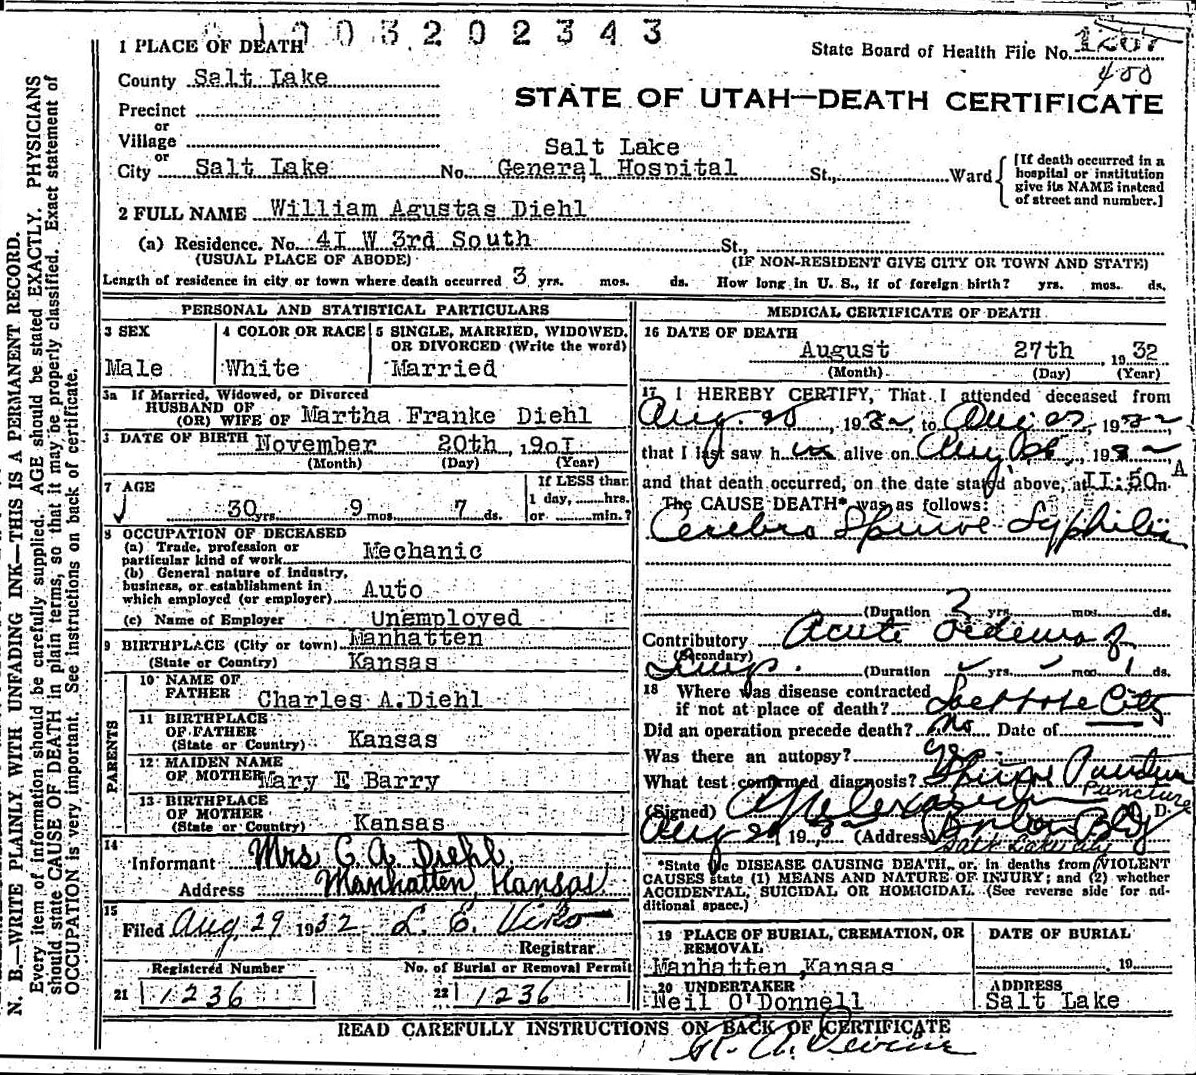 003202343
1 PLACE OF DEATH
State Board of Health File No. 1267
400
County Salt Lake
STATE OF UTAH—DEATH CERTIFICATE
Precinct
or
Village
or
City Salt Lake No. Salt Lake General Hospital St., Ward
[If death occurred in a
hospital or institution
give its NAME instead
of street and number.]
2 FULL NAME William Agustas Diehl
(a) Residence. No. 4I W 3rd South St.,
(USUAL PLACE OF ABODE) (IF NON-RESIDENT GIVE CITY OR TOWN AND STATE)
Length of residence in city or town where death occurred 3 yrs. mos. ds. How long in U. S., if of foreign birth? yrs. mos. ds.
PERSONAL AND STATISTICAL PARTICULARS
3 SEX
Male
4 COLOR OR RACE
White
5 SINGLE, MARRIED, WIDOWED,
OR DIVORCED (Write the word)
Married
3a If Married, Widowed, or Divorced
HUSBAND OF
(OR) WIFE OF Martha Franke Diehl
DATE OF BIRTH November 20th, 190I
(Month) (Day) (Year)
7 AGE
30 yrs. 9 mos. 7 ds.
If LESS than
1 day, hrs.
or min.?
8 OCCUPATION OF DECEASED
(a) Trade, profession or
particular kind of work Mechanic
(b) General nature of industry,
business, or establishment in
which employed (or employer) Auto
(c) Name of Employer Unemployed
9 BIRTHPLACE (City or town) Manhatten
(State or Country) Kansas
PARENTS
10 NAME OF
FATHER Charles A.Diehl
11 BIRTHPLACE
OF FATHER
(State or Country) Kansas
12 MAIDEN NAME
OF MOTHER Mary E Barry
13 BIRTHPLACE
OF MOTHER
(State or Country) Kansas
14
Informant Mrs C A Diehl
Address Manhatten, Kansas
15
Filed Aug 29 1932 L. E. Viko
Registrar
Registered Number
21 1236
No. of Burial or Removal Permit
22 1236
MEDICAL CERTIFICATE OF DEATH
16 DATE OF DEATH
August 27th 1932
(Month) (Day) (Year)
17 I HEREBY CERTIFY, That I attended deceased from
Aug. 25, 1932, to Aug 27, 1932
that I last saw him alive on Aug 26, 1932
and that death occurred, on the date stated above, at II:50 A m.
The CAUSE DEATH* was as follows:
Cerebro Spinve Syphilis
(Duration 2 yrs. mos. ds.
Contributory Acute Oedema of
(Secondary)
Lungs. (Duration yrs. mos. 1 ds.
18 Where was disease contracted
if not at place of death? Salt Lake City
Did an operation precede death? No Date of
Was there an autopsy? yes
What test confirmed diagnosis? Spinve Puncture
Puncture
(Signed) D.
Aug 29 1932 (Address) Boston Bldg
Salt Lake City
*State the DISEASE CAUSING DEATH, or, in deaths from VIOLENT
CAUSES state (1) MEANS AND NATURE OF INJURY; and (2) whether
ACCIDENTAL, SUICIDAL OR HOMICIDAL. (See reverse side for ad-
ditional space.)
19 PLACE OF BURIAL, CREMATION, OR
REMOVAL
Manhatten ,Kansas
DATE OF BURIAL
19
20 UNDERTAKER
Neil O'Donnell
ADDRESS
Salt Lake
READ CAREFULLY INSTRUCTIONS ON BACK OF CERTIFICATE
R. A. Devine
N. B.—WRITE PLAINLY WITH UNFADING INK—THIS IS A PERMANENT RECORD.
Every item of information should be carefully supplied. AGE should be stated EXACTLY. PHYSICIANS
should state CAUSE OF DEATH in plain terms, so that it may be properly classified. Exact statement of
OCCUPATION is very important. See instructions on back of certificate.